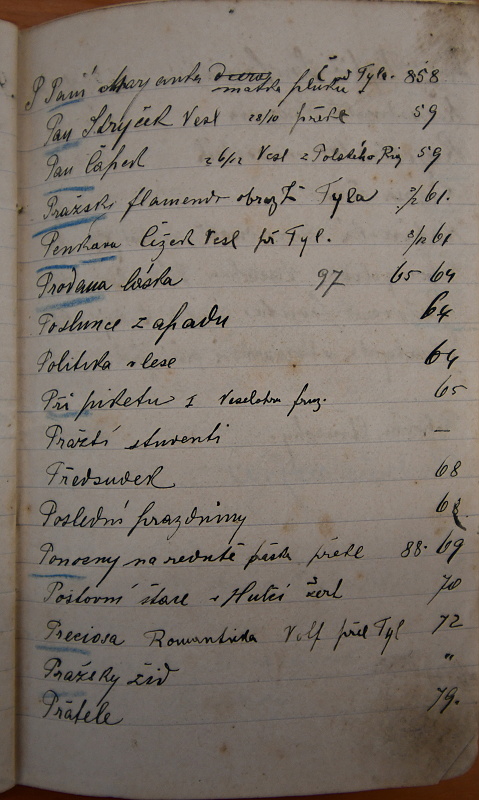 P Paní Maryanka dcera matka pluku Č od Tyla. 858
Pan Strýček Vesl 28/10 překl 59
Pan Čapek 26/12 Vesl z Polského 59
Pražský flamendr obraz Tyla 61.
Penkava Čížek Vesl při Tyl. 61
Prodana láska 97 65 64
Poslunce zapadu 64
Politika v lese 64
Při piketu I Veselohra frnz. 65
Pražští studenti —
Předsudek 68
Poslední prazdniny 68
Ponocny na redutě překl 88. 69
Poštovní stace v Hutči žert 70
Preciosa Romanticka Volf přel Tyl 72
Pražsky žid "
Přátele 79.